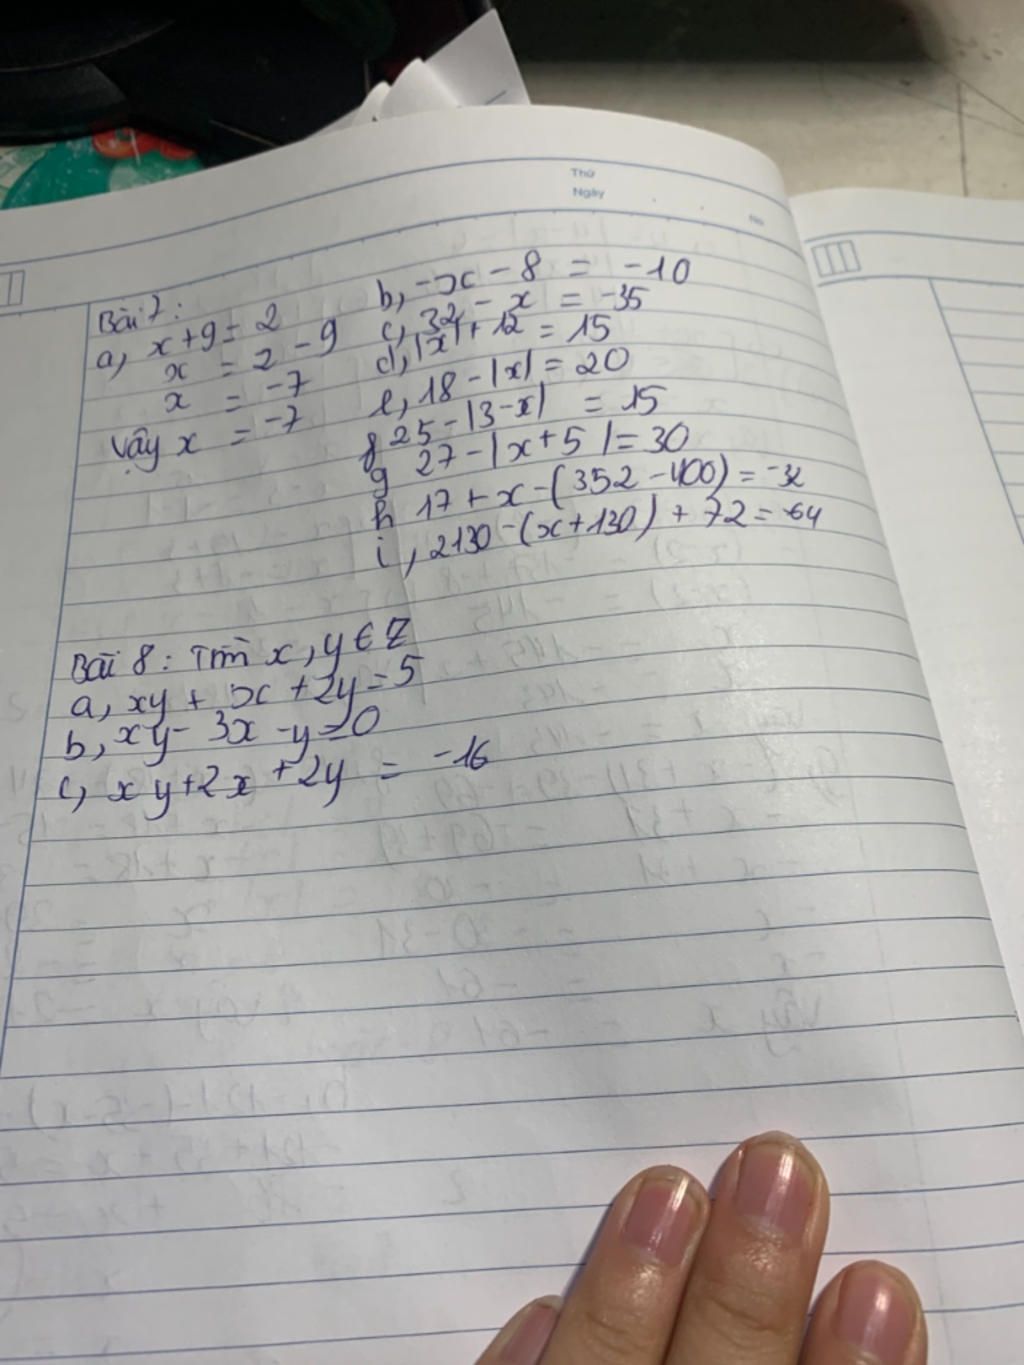 Thứ
Ngày
No
Bài 7:
a, x + 9 = 2
x = 2 - 9
x = -7
Vậy x = -7
b, -x - 8 = -10
c, 32 - x = -35
d, |x| + 12 = 15
e, 18 - |x| = 20
f 25 - |3 - x| = 15
g 27 - |x + 5| = 30
h 17 + x - (352 - 400) = -32
i, 2130 - (x + 130) + 72 = -64
Bài 8: Tìm x, y ∈ Z
a, xy + x + 2y = 5
b, xy - 3x - y = 0
c, xy + 2x + 2y = -16